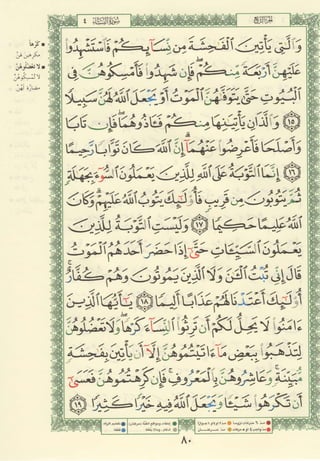 سورة النساء ٤
الجزء الرابع
وَٱلَّٰتِى يَأْتِينَ ٱلْفَٰحِشَةَ مِن نِّسَآئِكُمْ فَٱسْتَشْهِدُوا۟
عَلَيْهِنَّ أَرْبَعَةً مِّنكُمْ ۖ فَإِن شَهِدُوا۟ فَأَمْسِكُوهُنَّ فِى
ٱلْبُيُوتِ حَتَّىٰ يَتَوَفَّىٰهُنَّ ٱلْمَوْتُ أَوْ يَجْعَلَ ٱللَّهُ لَهُنَّ سَبِيلًا
١٥ وَٱلَّذَانِ يَأْتِيَٰنِهَا مِنكُمْ فَـَٔاذُوهُمَا ۖ فَإِن تَابَا
وَأَصْلَحَا فَأَعْرِضُوا۟ عَنْهُمَآ ۗ إِنَّ ٱللَّهَ كَانَ تَوَّابًا رَّحِيمًا
١٦ إِنَّمَا ٱلتَّوْبَةُ عَلَى ٱللَّهِ لِلَّذِينَ يَعْمَلُونَ ٱلسُّوٓءَ بِجَهَٰلَةٍ
ثُمَّ يَتُوبُونَ مِن قَرِيبٍ فَأُو۟لَٰٓئِكَ يَتُوبُ ٱللَّهُ عَلَيْهِمْ ۗ وَكَانَ
ٱللَّهُ عَلِيمًا حَكِيمًا ١٧ وَلَيْسَتِ ٱلتَّوْبَةُ لِلَّذِينَ
يَعْمَلُونَ ٱلسَّيِّـَٔاتِ حَتَّىٰٓ إِذَا حَضَرَ أَحَدَهُمُ ٱلْمَوْتُ
قَالَ إِنِّى تُبْتُ ٱلْـَٰٔنَ وَلَا ٱلَّذِينَ يَمُوتُونَ وَهُمْ كُفَّارٌ ۚ
أُو۟لَٰٓئِكَ أَعْتَدْنَا لَهُمْ عَذَابًا أَلِيمًا ١٨ يَٰٓأَيُّهَا ٱلَّذِينَ
ءَامَنُوا۟ لَا يَحِلُّ لَكُمْ أَن تَرِثُوا۟ ٱلنِّسَآءَ كَرْهًا ۖ وَلَا تَعْضُلُوهُنَّ
لِتَذْهَبُوا۟ بِبَعْضِ مَآ ءَاتَيْتُمُوهُنَّ إِلَّآ أَن يَأْتِينَ بِفَٰحِشَةٍ
مُّبَيِّنَةٍ ۚ وَعَاشِرُوهُنَّ بِٱلْمَعْرُوفِ ۚ فَإِن كَرِهْتُمُوهُنَّ فَعَسَىٰٓ
أَن تَكْرَهُوا۟ شَيْـًٔا وَيَجْعَلَ ٱللَّهُ فِيهِ خَيْرًا كَثِيرًا ١٩
٨٠